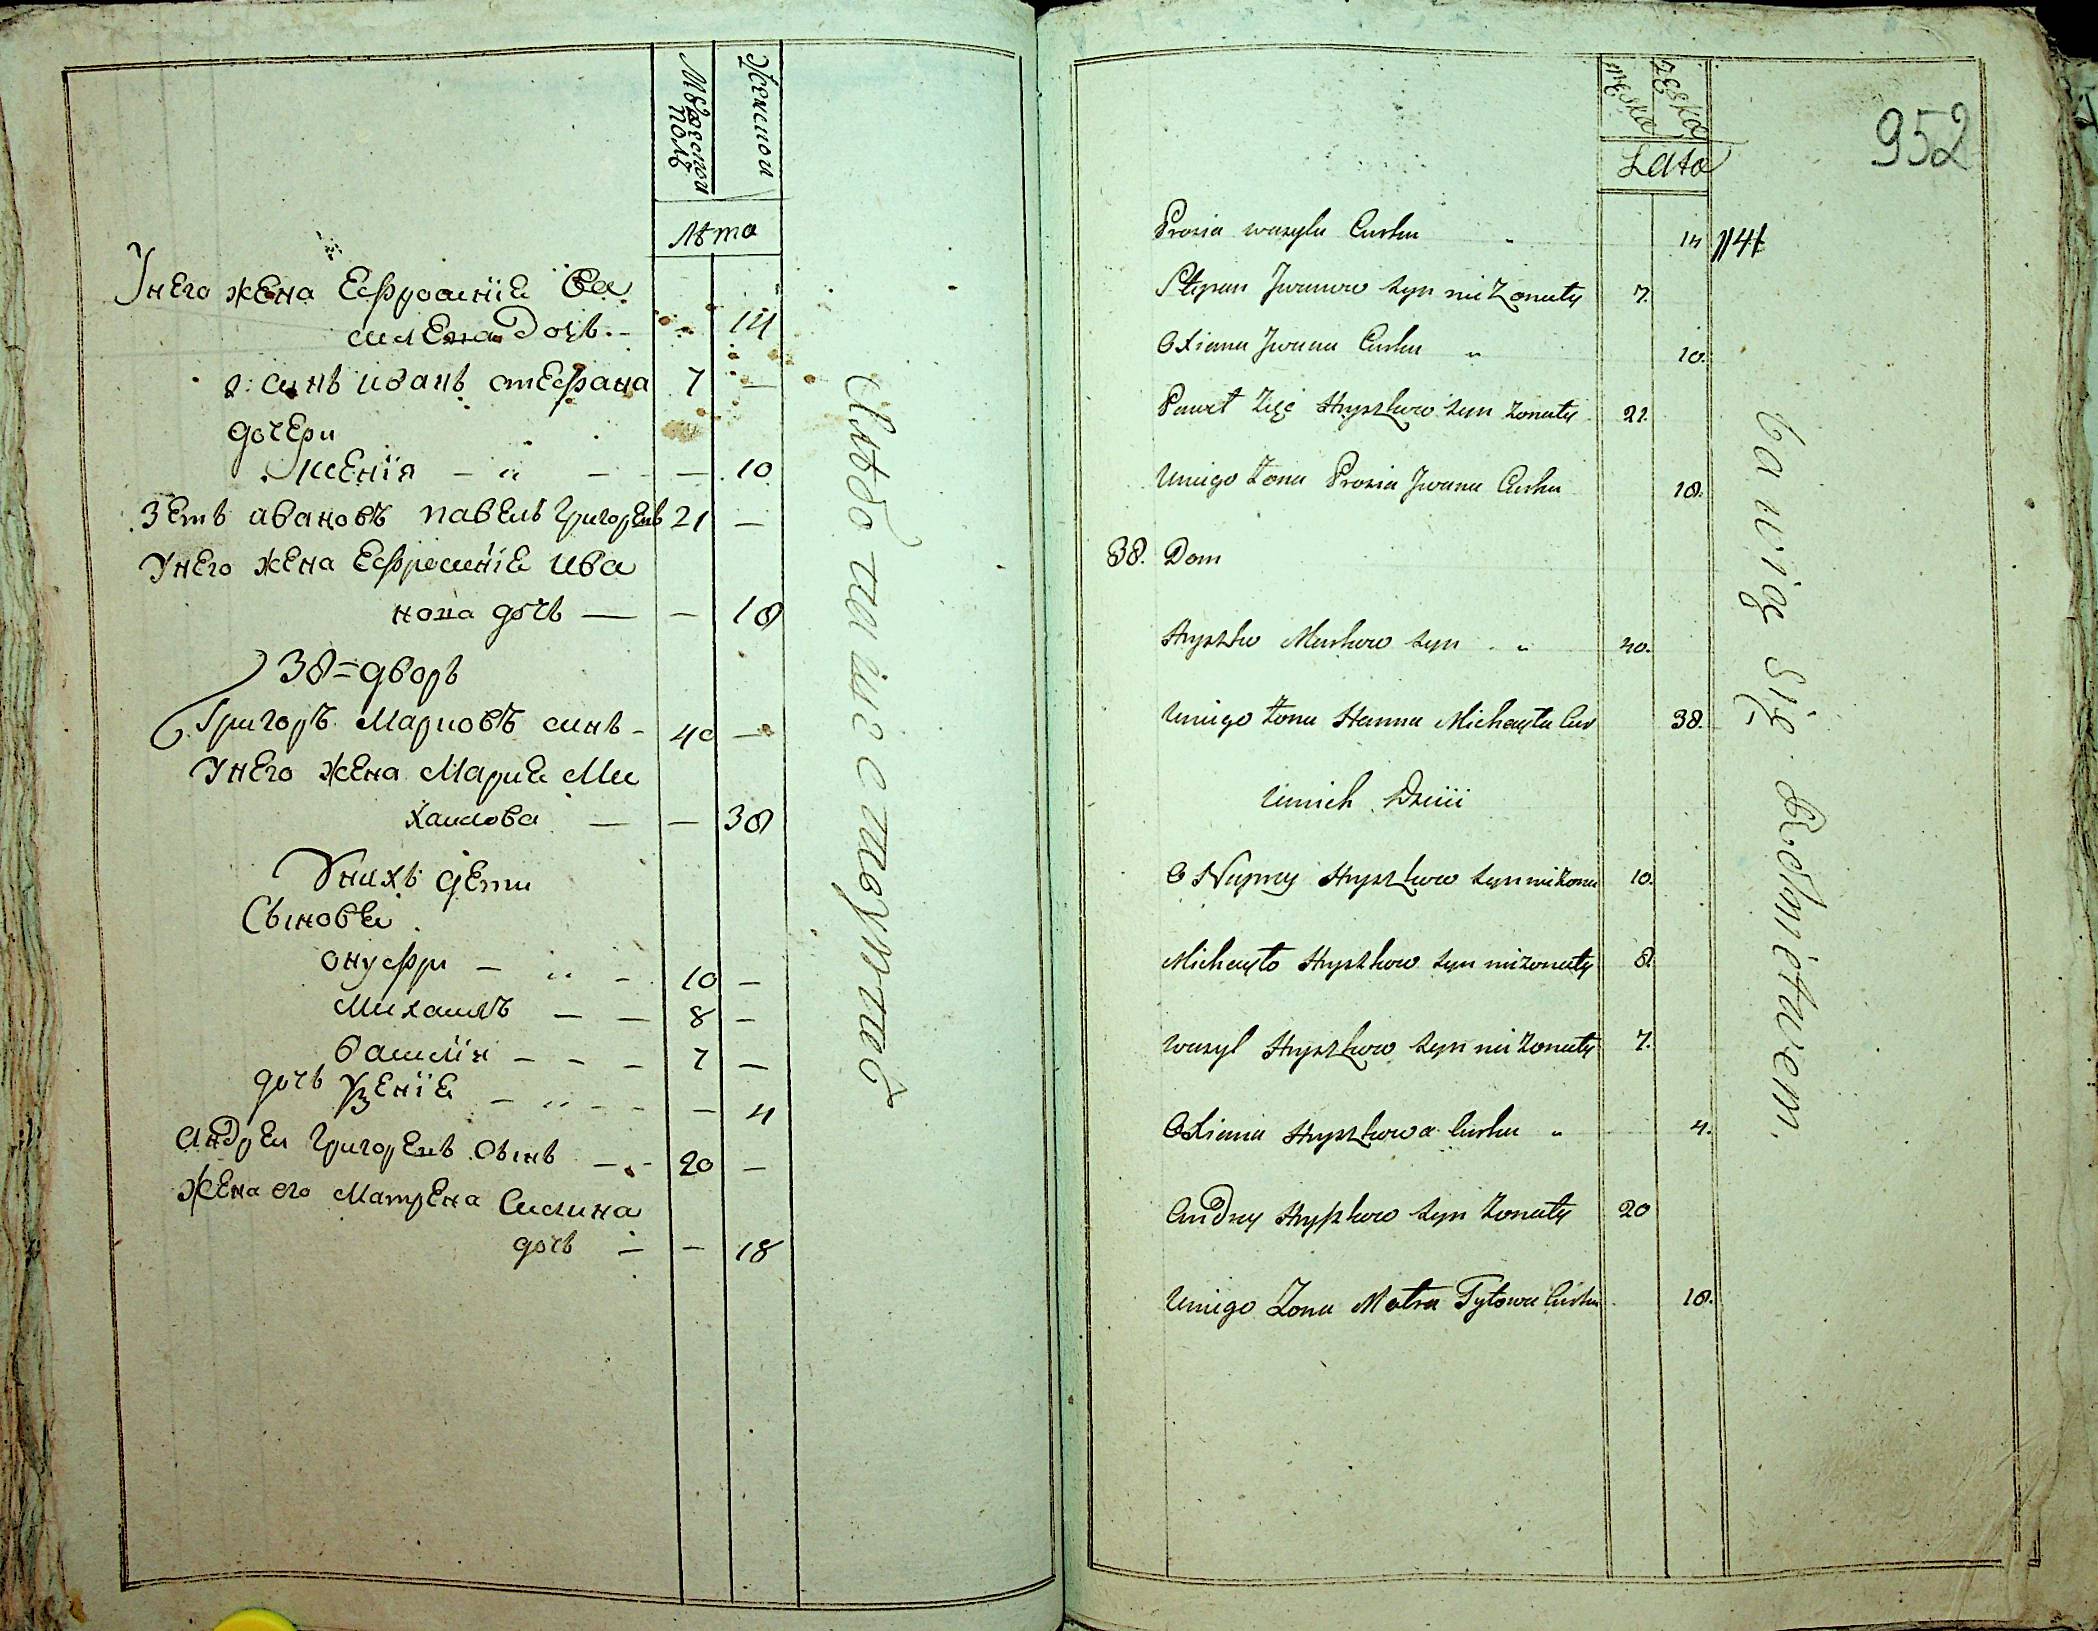 Мужеска полъ
Женска
Лѣта
Унего жена Ефросинïе Ва
силева дочь. - - 14
2: синъ иванъ стефана 7 —
дочери
Ксенïя — „ — — 10
Зеть ивановъ павелъ григоревъ 21 —
Унего жена Ефросинïе Ива
нова дочь — — 18
38 = дворъ
Григоръ Марковъ синъ - 40 —
Унего жена Марие Ми
хаилова — — 38
Унихъ дети
Сыновеи
онуфри — „ - 10 —
Михаилъ — — 8 —
василïи - - - 7 —
дочь - „ - - — 4
Андреи григоревъ сынъ — - 20 —
жена его Матрена
дочь — — 18
Męska
Żeska
Lata
952
Prosia wasyla Curka „ 14
1141
Stepan Jwanow syn nie Zonaty 7.
Oxiana Jwana Curka „ 10.
Paweł Zięć Hryszkow syn zonaty 21.
Uniego Zona Prosia Jwana Curka 18.
38. Dom
Hryszko Markow syn „ 40.
Uniego żona Hanna Michayła Cur 38.
Unich Dzieci
ONupry Hryszkow syn nizona 10.
Michayło Hryszkow syn nizonaty 8.
wasyl Hryszkow syn ni zonaty 7.
Oxiana Hryszkowa Curka „ 4.
Andrey Hryszkow syn zonaty 20
Uniego Zona Matra Tytowa Curka 18.
bawią się